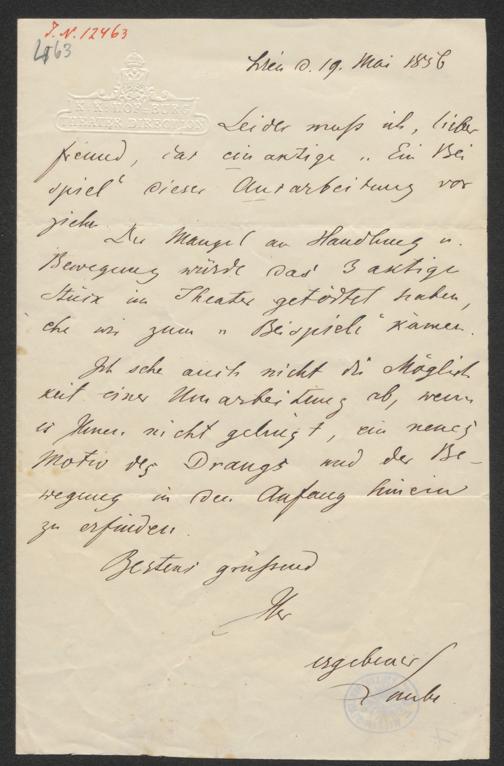 J.N. 12463
4163
K. K. HOF BURG
THEATER DIRECTION
Wien d. 19. Mai 1856
Leider muß ich, lieber
Freund, das einaktige „Ein Bei
spiel“ dieser Ausarbeitung vor
ziehn.
Der Mangel an Handlung u.
Bewegung würde das 3 aktige
Stück im Theater getödtet haben,
ehe wir zum „Beispiele“ kämen.
Ich sehe auch nicht die Möglich
keit einer Umarbeitung ab, wenn
es Ihnen nicht gelingt, ein neues
Motiv des Drangs und der Be-
wegung in den Anfang hinein
zu erfinden.
Bestens grüßend
Ihr
ergebener
Laube.